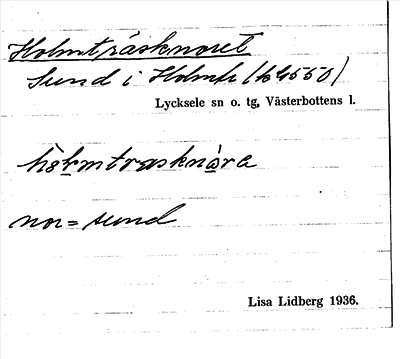 Holmträsknoret
Sund i Holmtr (bl 4550)
Lycksele sn o. tg, Västerbottens l.
hòlmtrasknòra
nor = sund
Lisa Lidberg 1936.